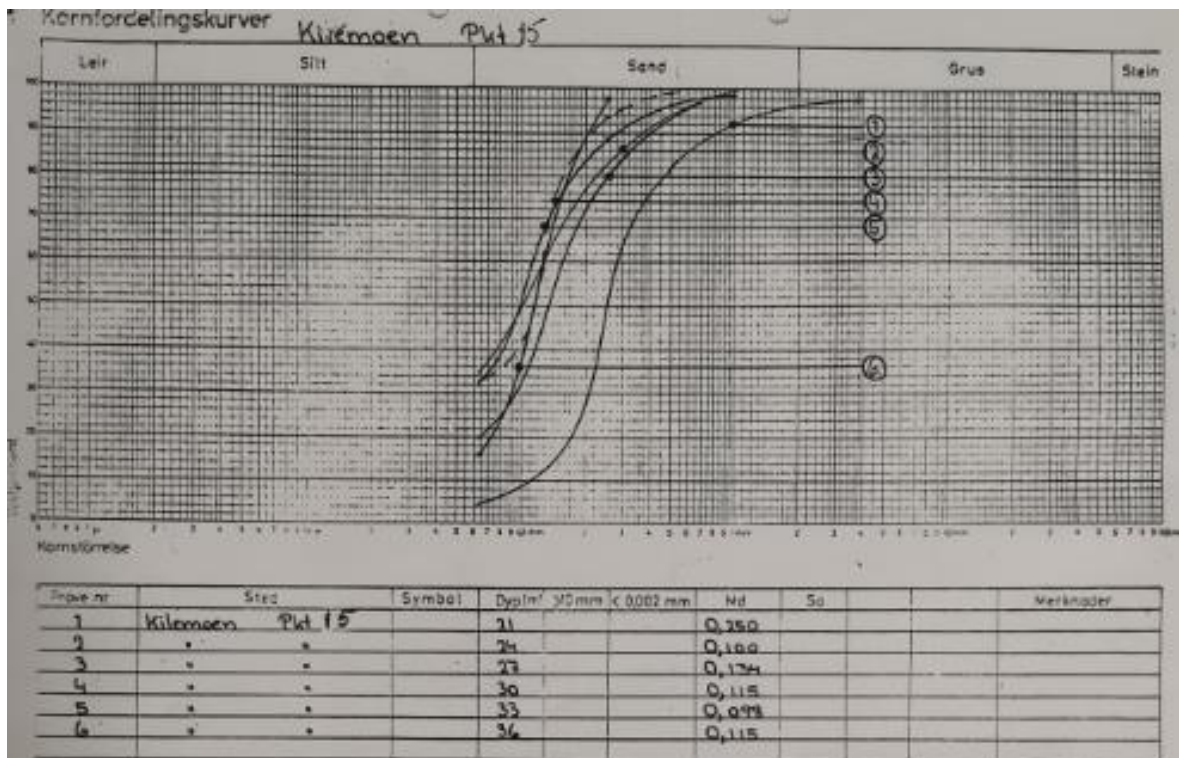 Kornfordelingskurver Kilemoen Pkt 15
Leir Silt Sand Grus Stein
100
90
80
70
60
50
40
30
20
10
0
1
2
3
4
5
6
Kornstörrelse
Prøve nr Sted Symbol Dyp(m) >10mm < 0,002 mm Md So Merknader
1 Kilemoen Pkt 15 21 0,250
2 " " 24 0,100
3 " " 27 0,134
4 " " 30 0,115
5 " " 33 0,098
6 " " 36 0,115